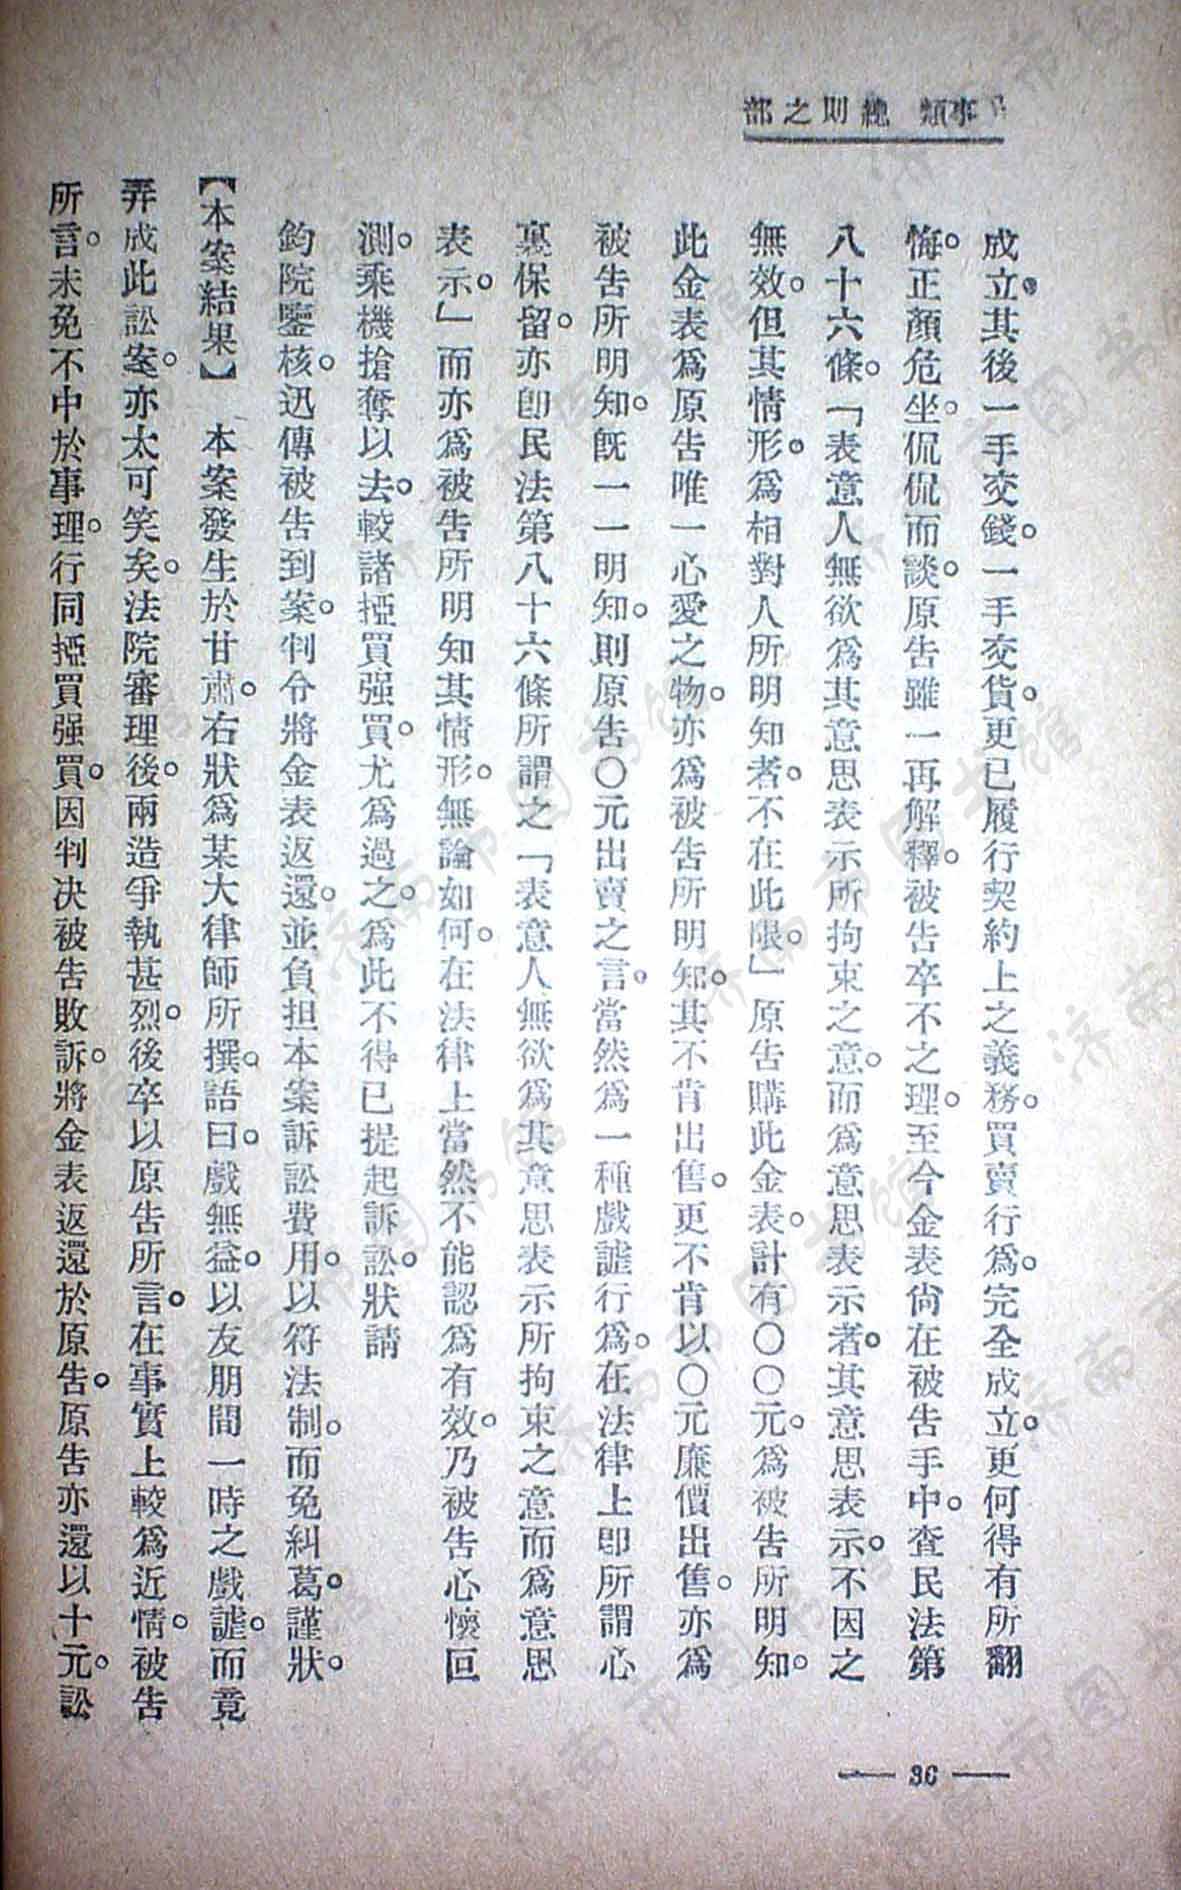 民事類 總則之部
成立。其後一手交錢。一手交貨。更已履行契約上之義務。買賣行爲。完全成立。更何得有所翻
悔。正顏危坐。侃侃而談。原告雖一再解釋。被告卒不之理。至今金表尙在被告手中。查民法第
八十六條。「表意人無欲爲其意思表示所拘束之意。而爲意思表示者。其意思表示。不因之
無效。但其情形。爲相對人所明知者。不在此限。」原告購此金表。計有〇〇元。爲被告所明知。
此金表爲原告唯一心愛之物。亦爲被告所明知。其不肯出售。更不肯以〇元廉價出售。亦爲
被告所明知。旣一一明知。則原告〇元出賣之言。當然爲一種戲謔行爲。在法律上卽所謂心
裏保留。亦卽民法第八十六條所謂之「表意人無欲爲其意思表示所拘束之意而爲意思
表示。」而亦爲被告所明知其情形。無論如何。在法律上當然不能認爲有效。乃被告心懷叵
測。乘機搶奪以去。較諸掗買强買。尤爲過之。爲此不得已提起訴訟。狀請
鈞院鑒核。迅傳被告到案。判令將金表返還。並負担本案訴訟費用。以符法制。而免糾葛。謹狀。
【本案結果】 本案發生於甘肅。右狀爲某大律師所撰。語曰。戲無益。以友朋間一時之戲謔。而竟
弄成此訟案。亦太可笑矣。法院審理後。兩造爭執甚烈。後卒以原告所言。在事實上較爲近情。被告
所言。未免不中於事理。行同掗買强買。因判决被告敗訴。將金表返還於原告。原告亦還以十元。訟
— 36 —
济南市图书馆